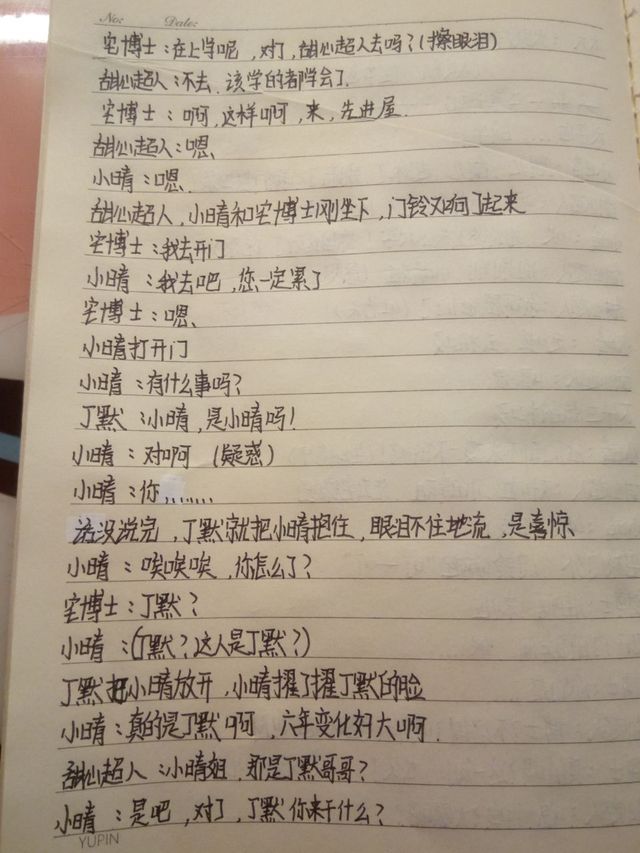 No:    Date:
宅博士：在上学呢，对了，甜心超人去吗？（擦眼泪）
甜心超人：不去，该学的都学会了
宅博士：啊，这样啊，来，先进屋.
甜心超人：嗯、
小晴：嗯.
甜心超人，小晴和宅博士刚坐下，门铃又响了起来
宅博士：我去开门
小晴：我去吧，您一定累了
宅博士：嗯、
小晴打开门
小晴：有什么事吗？
丁默：小晴，是小晴吗！
小晴：对啊（疑惑）
小晴：你，，，，，，
话没说完，丁默就把小晴抱住，眼泪不住地流，是喜惊
小晴：唉唉唉，你怎么了？
宅博士：丁默？
小晴：（丁默？这人是丁默？）
丁默把小晴放开，小晴擢了擢丁默的脸
小晴：真的是丁默啊，六年变化好大啊.
甜心超人：小晴姐，那是丁默哥哥？
小晴：是吧，对了，丁默你来干什么？
YUPIN